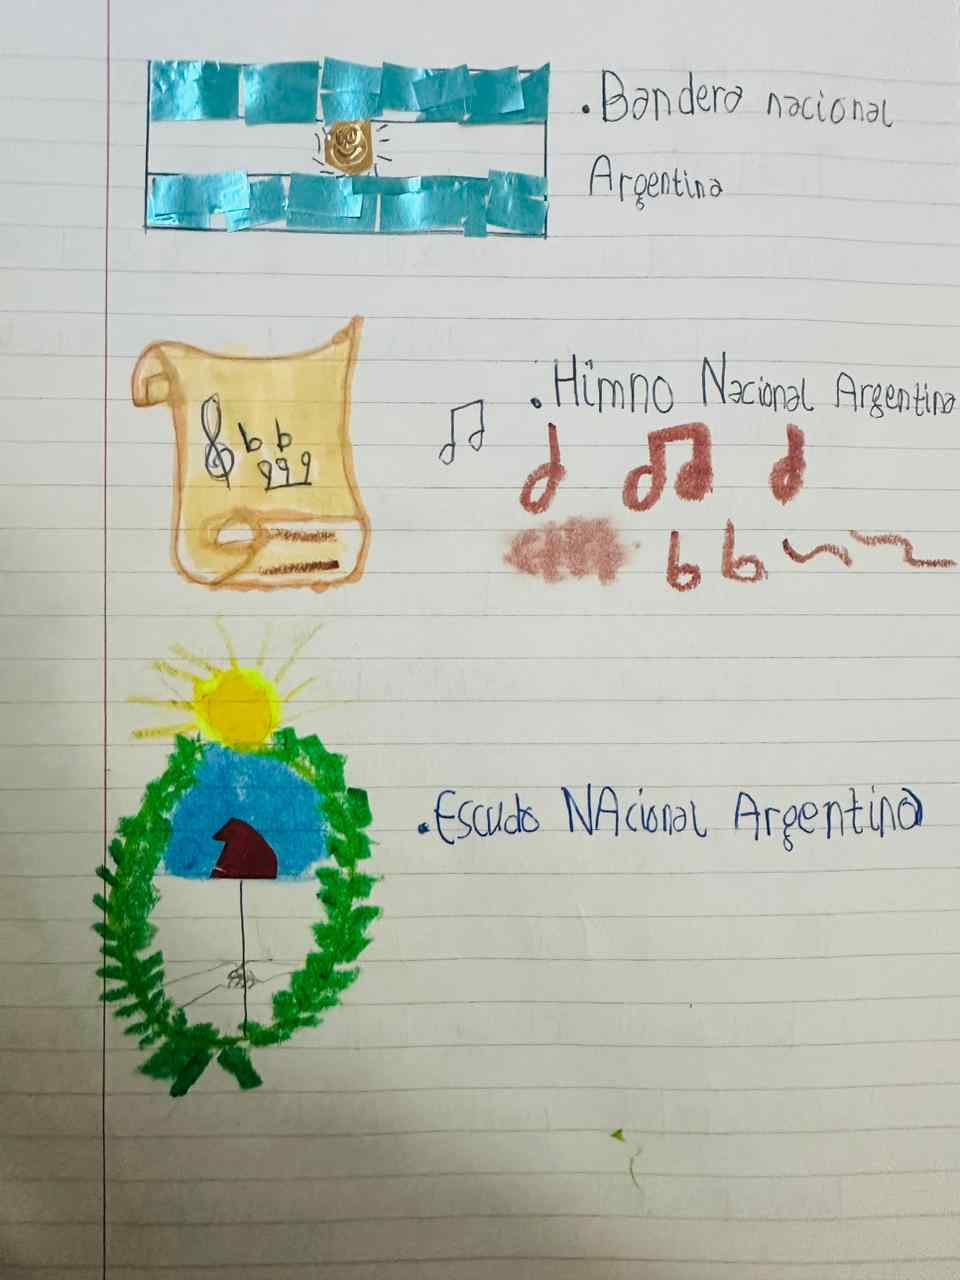 .Bandera nacional
Argentina
.Himno Nacional Argentino
.Escudo NAcional Argentino